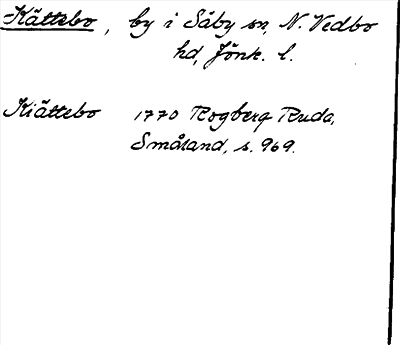 Kättebo, by i Säby sn, N. Vedbo
hd, Jönk. l.
Kiättebo 1770 Rogberg Ruda,
Småland, s. 969.